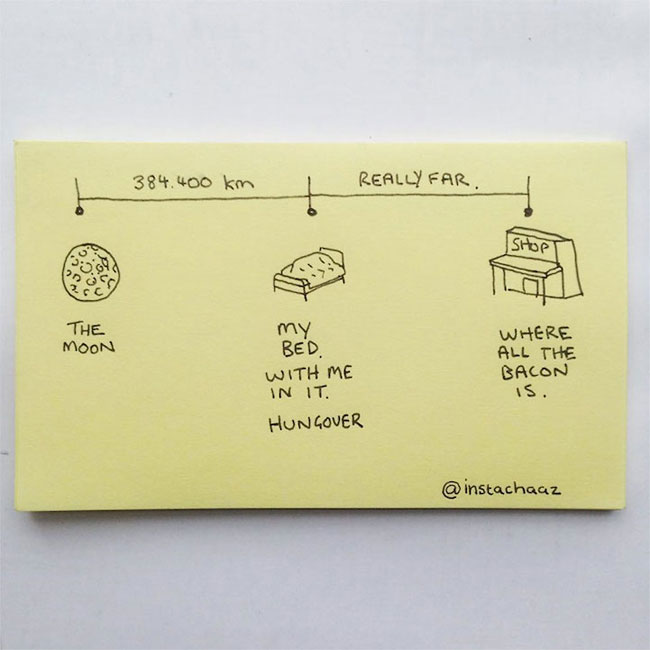 384.400 km
REALLY FAR.
THE
MOON
MY
BED.
WITH ME
IN IT.
HUNGOVER
SHOP
WHERE
ALL THE
BACON
IS.
@instachaaz